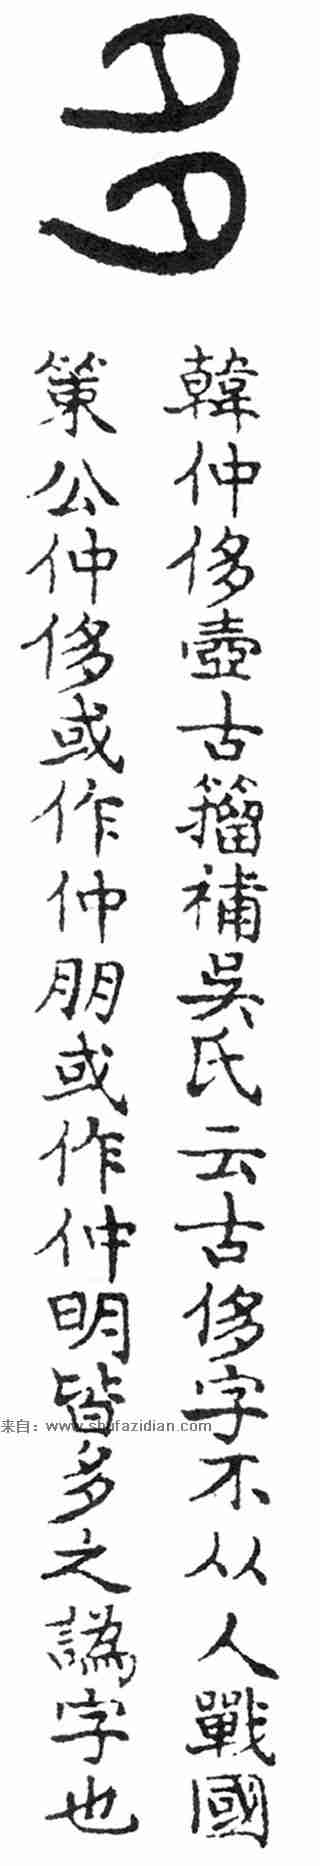 多
韓仲侈壺古籀補吳氏云古侈字不从人戰國
策公仲侈或作仲朋或作仲明皆多之譌字也
来自：www.shufazidian.com